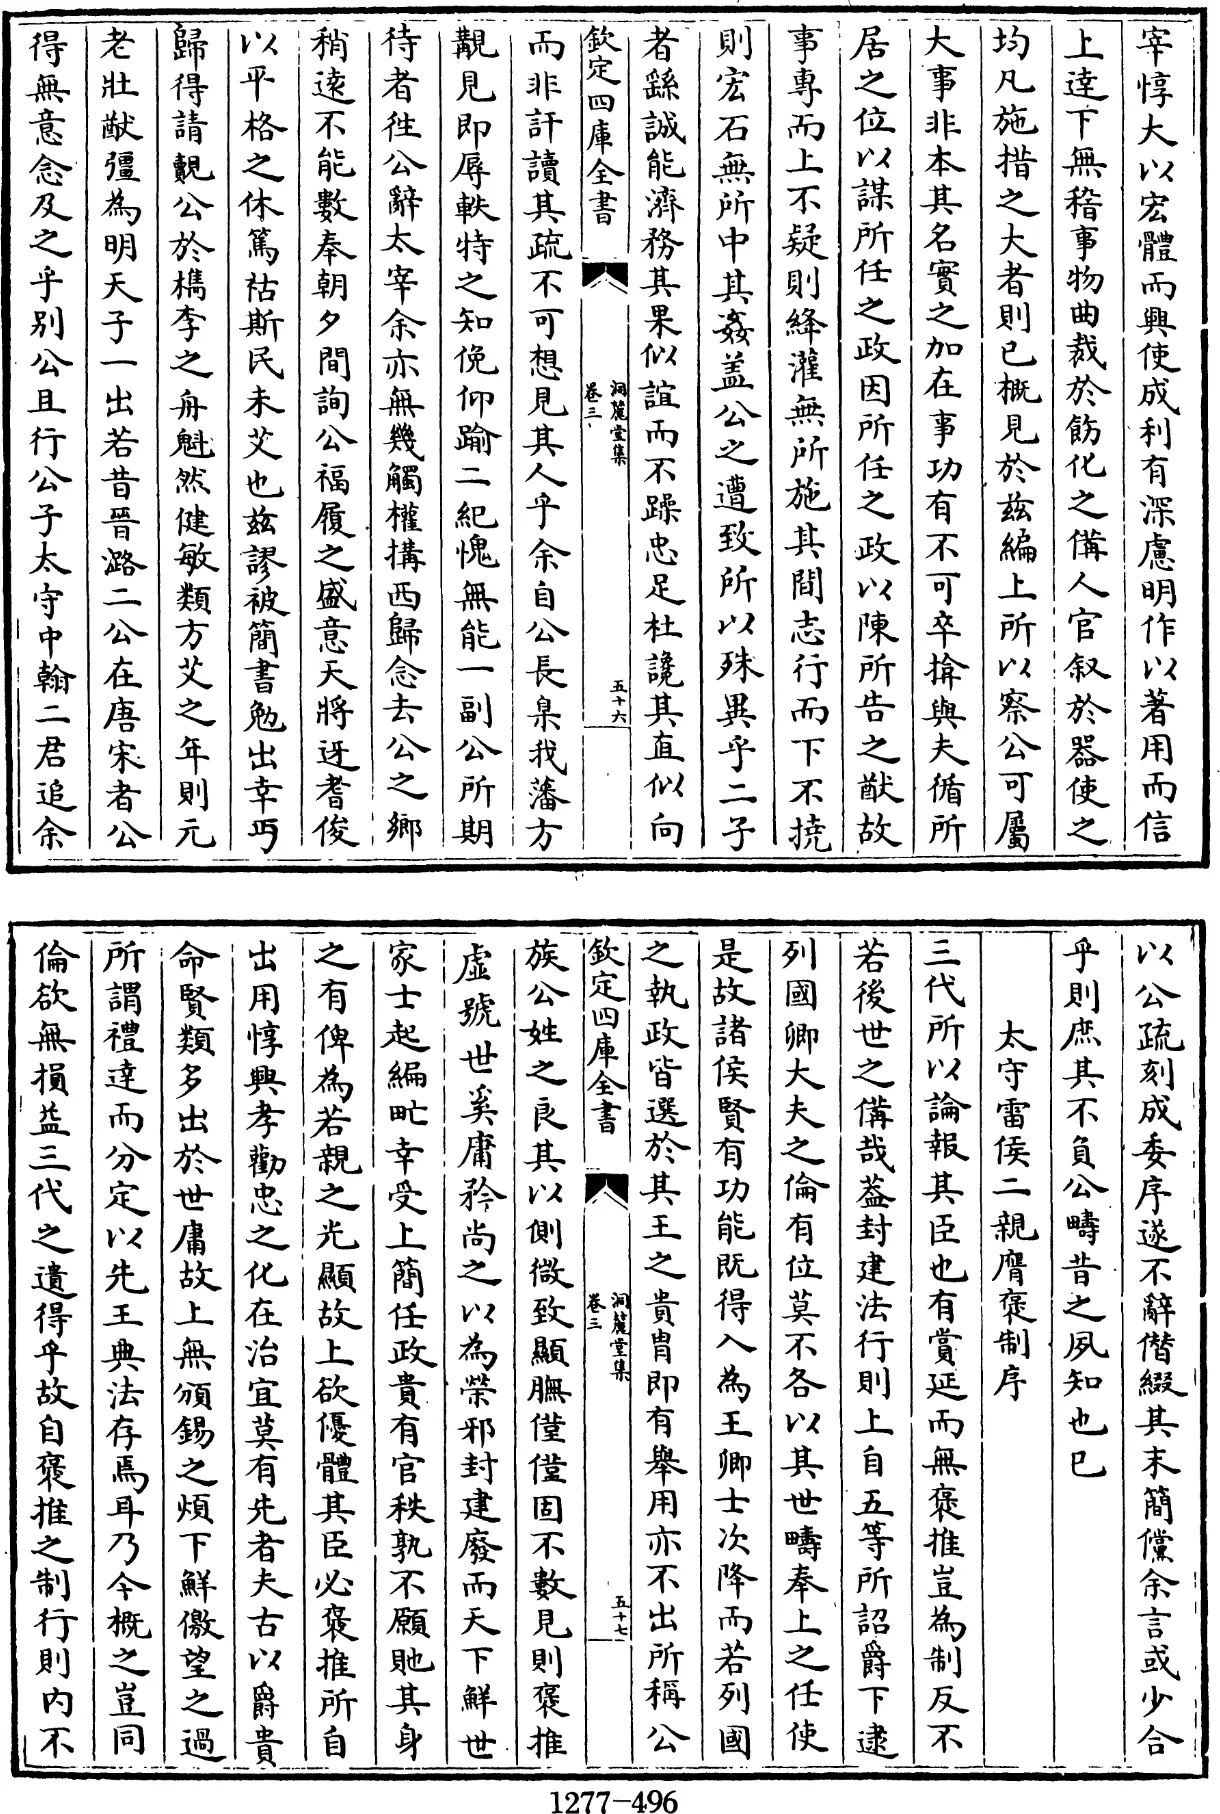 宰惇大以宏體而興使成利有深慮明作以著用而信
上達下無稽事物曲裁於飭化之備人官叙於器使之
均凡施措之大者則已概見於兹編上所以察公可屬
大事非本其名實之加在事功有不可卒揜與夫循所
居之位以謀所任之政因所任之政以陳所告之猷故
事專而上不疑則絳灌無所施其間志行而下不撓
則宏石無所中其姦盖公之遭致所以殊異乎二子
者繇誠能濟務其果似誼而不躁忠足杜讒其直似向
欽定四庫全書
洞麓堂集
卷三
五十六
而非訐讀其疏不可想見其人乎余自公長臬我藩方
覯見即辱軼特之知俛仰踰二紀愧無能一副公所期
待者徃公辭太宰余亦無幾觸權搆西歸念去公之鄉
稍遠不能數奉朝夕間詢公福履之盛意天將迓耆俊
以平格之休篤祜斯民未艾也兹謬被簡書勉出幸丐
歸得請覿公於檇李之舟魁然健敏類方艾之年則元
老壯猷彊為明天子一出若昔晉潞二公在唐宋者公
得無意念及之乎别公且行公子太守中翰二君追余
以公疏刻成委序遂不辭僭綴其末簡儻余言或少合
乎則庶其不負公疇昔之夙知也已
太守雷侯二親膺褒制序
三代所以論報其臣也有賞延而無褒推豈為制反不
若後世之備哉葢封建法行則上自五等所詔爵下逮
列國卿大夫之倫有位莫不各以其世疇奉上之任使
是故諸侯賢有功能既得入為王卿士次降而若列國
之執政皆選於其王之貴胄即有舉用亦不出所稱公
欽定四庫全書
洞麓堂集
卷三
五十七
族公姓之良其以側微致顯膴僅僅固不數見則褒推
虚號世奚庸矜尚之以為榮邪封建廢而天下鮮世
家士起編甿幸受上簡任政貴有官秩孰不願貤其身
之有俾為若親之光顯故上欲優體其臣必褒推所自
出用惇興孝勸忠之化在治宜莫有先者夫古以爵貴
命賢類多出於世庸故上無頒錫之煩下鮮儌望之過
所謂禮達而分定以先王典法存焉耳乃今概之豈同
倫欲無損益三代之遺得乎故自褒推之制行則内不
1277-496